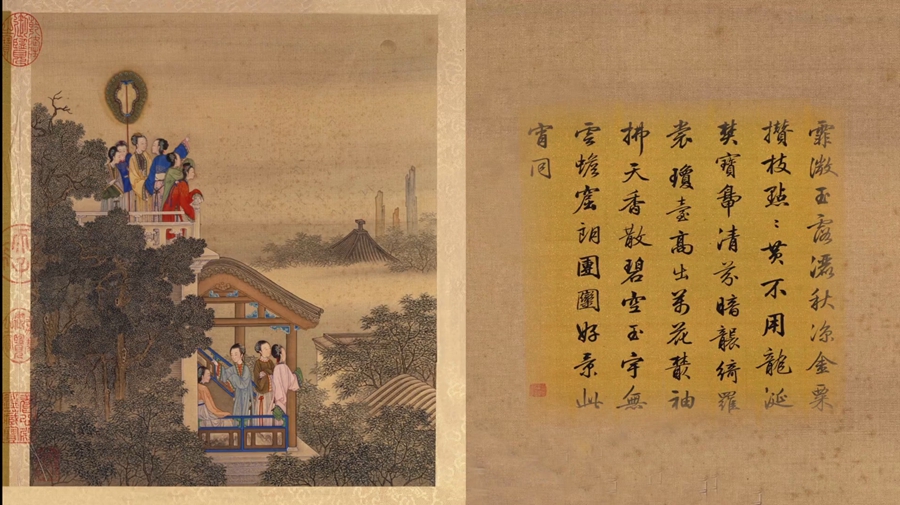 霏微玉露濕秋凉金粟
攅枝點〻黄不用龍涎
焚寶鼎清芬暗襲綺羅
裳瓊臺高出萬花叢袖
拂天香散碧空玉宇無
雲蟾窟朗團圞好景此
宵同